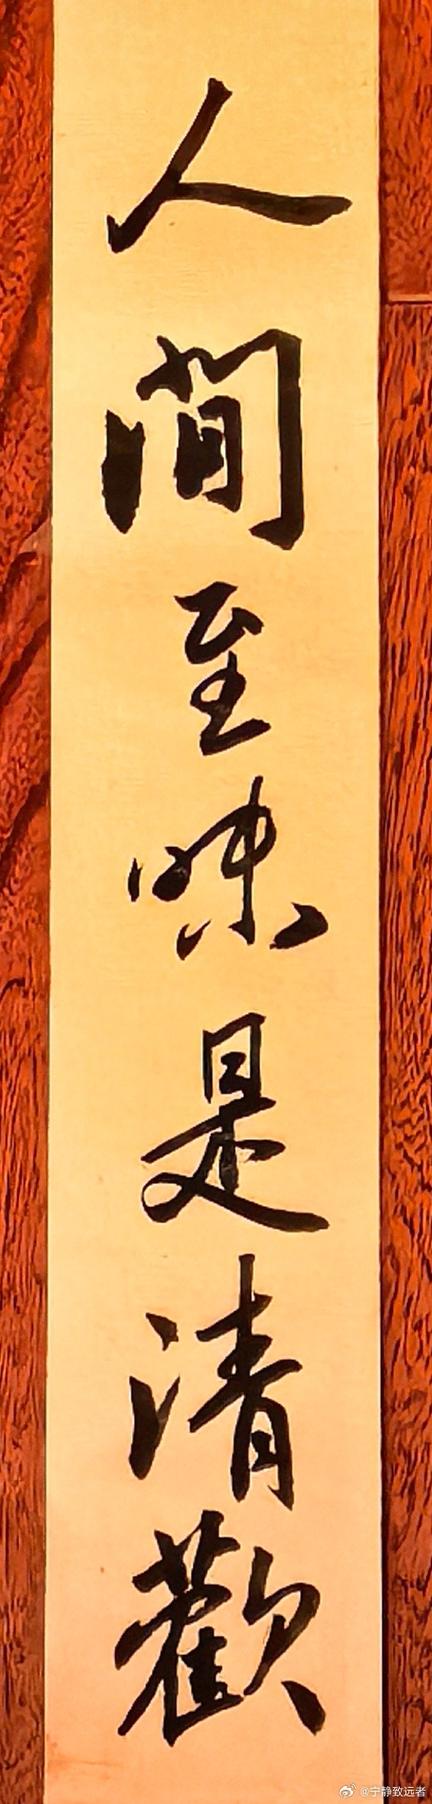 人間至味是清歡
@宁静致远者